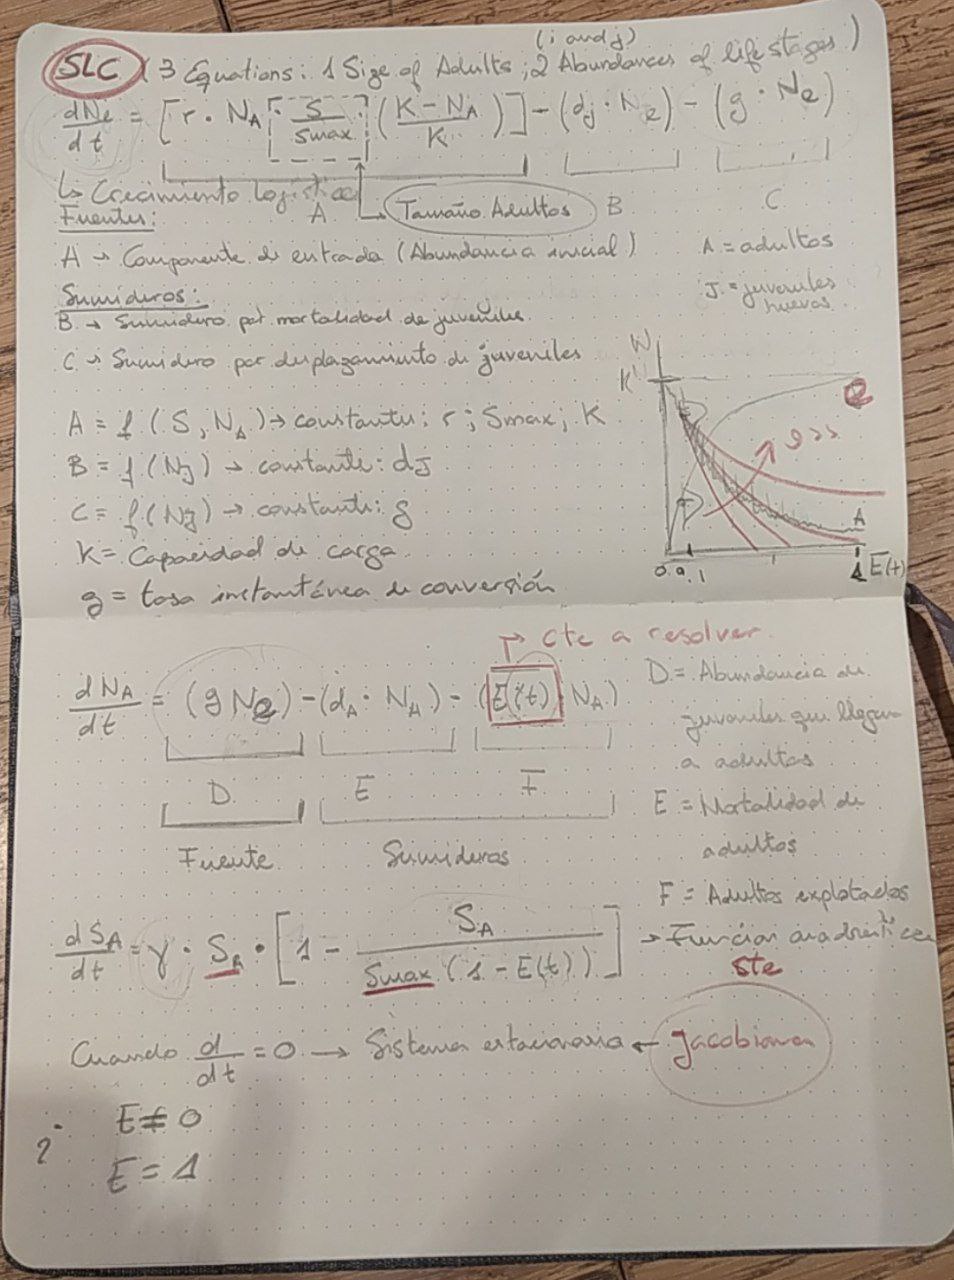 (i and j)
SLC (3 Equations: 1 Size of Adults; 2 Abundances of life stages)
dNe/dt = [r · NA · S/Smax · (K - NA / K)] - (dj · Ne) - (g · Ne)
↳ Crecimiento Logístico A Tamaño Adultos B C
Fuentes:
A → Componente de entrada (Abundancia inicial) A = adultos
Sumideros: J = juveniles
B → Sumidero por mortalidad de juveniles
C → Sumidero por desplazamiento de juveniles
A = f (S, NA) → constantes: r; Smax; K
B = f (NJ) → constante: dJ
C = f (NJ) → constante: g
K = Capacidad de carga
g = tasa instantánea de conversión
N
K
e
g>>
A
0 0,1 1 E(t)
cte a resolver
dNA/dt = (g Ne) - (dA · NA) - (E(t) · NA)
D E F
Fuente Sumideros
D = Abundancia de
juveniles que llegan
a adultos
E = Mortalidad de
adultos
F = Adultos explotados
dSA/dt = γ · SA · [1 - SA / Smax (1 - E(t))] → Función cuadrática
ste
Cuando d/dt = 0 → Sistema estacionario ← Jacobiana
E ≠ 0
?
E = 1